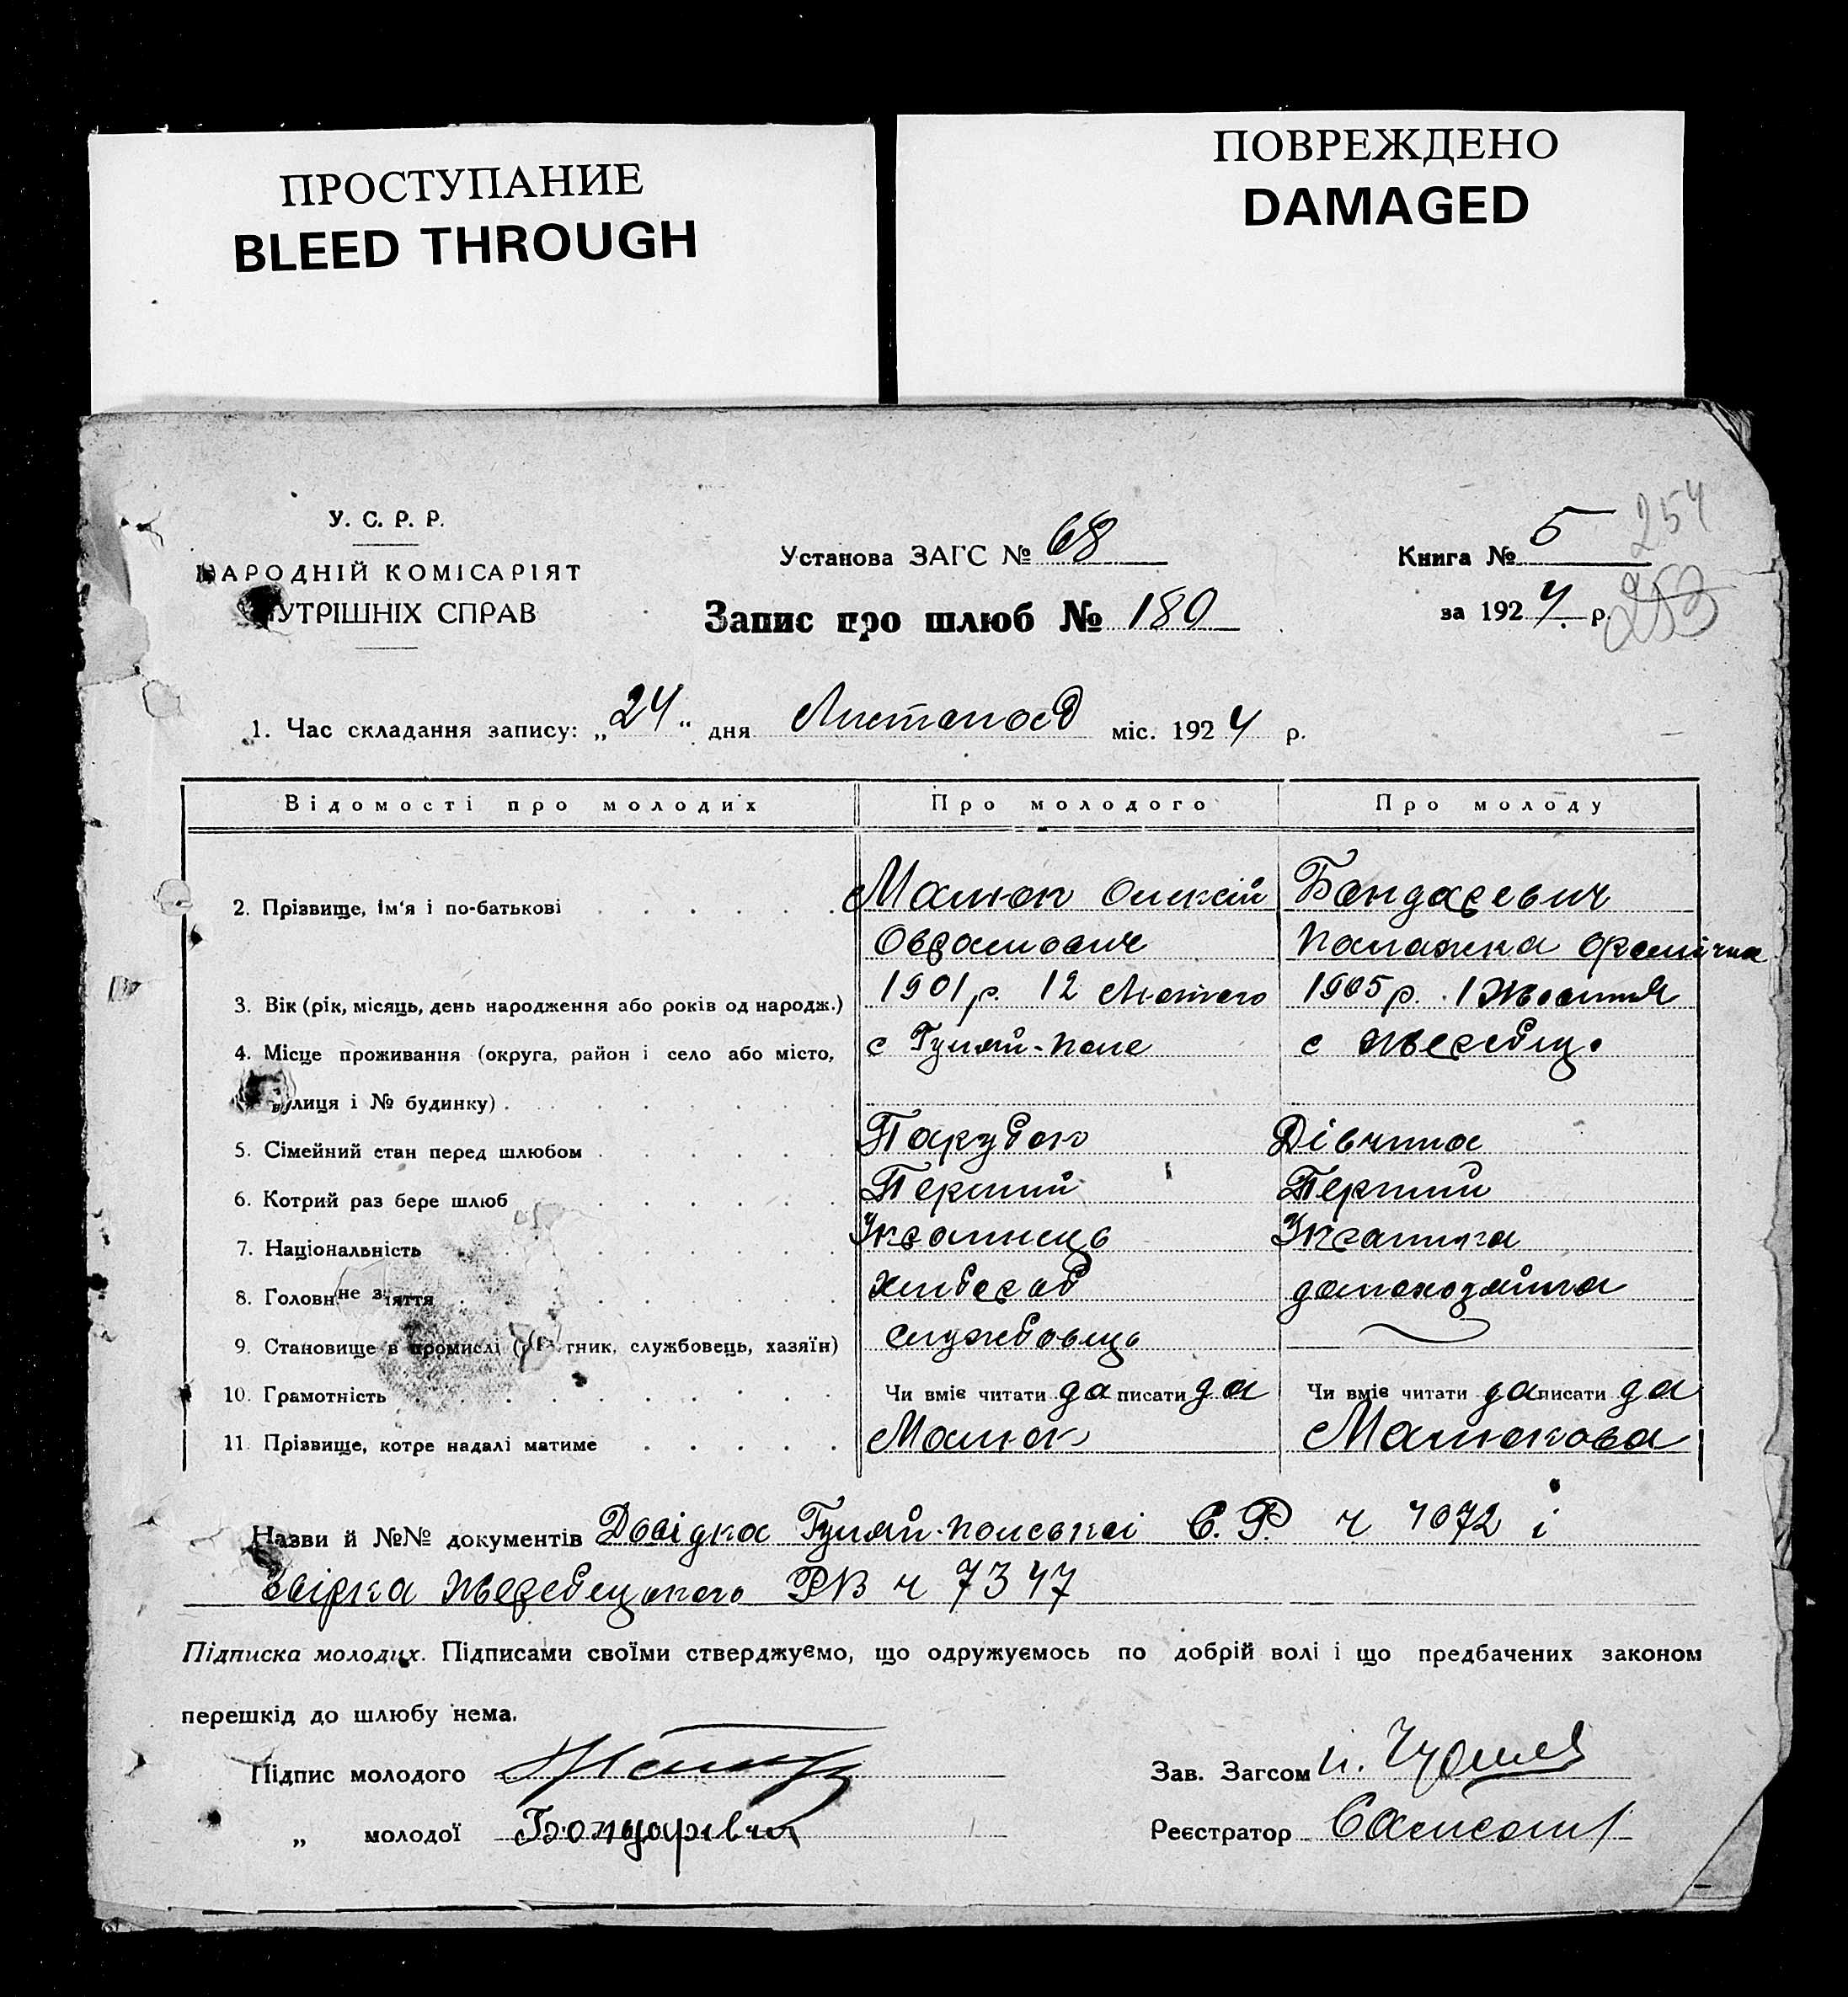 ПРОСТУПАНИЕ
BLEED THROUGH
ПОВРЕЖДЕНО
DAMAGED
254
253
У. С. Р. Р.
НАРОДНІЙ КОМІСАРІЯТ
УТРІШНІХ СПРАВ
Установа ЗАГС № 68
Запис про шлюб № 180
Книга № 5
за 1924 р.
1. Час складання запису: „24" дня Листопад міс. 1924 р.
Відомості про молодих Про молодого Про молоду
2. Прізвище, ім'я і по-батькові Малюк Олексій Бондаревич
Оврамович Палажка
3. Вік (рік, місяць, день народження або років од народж.) 1901 р. 12 Лютого 1905 р. 1 Жовтня
4. Місце проживання (округа, район і село або місто, с Гуляй-Поле с Жеребец.
вулиця і № будинку)
5. Сімейний стан перед шлюбом Парубок Дівчина
6. Котрий раз бере шлюб Перший Перший
7. Національність Українець Українка
8. Головнне зняття Хлібороб домохозяйка
9. Становище в промислі (гник, службовець, хазяїн) службовець
10. Грамотність Чи вміє читати да писати да Чи вміє читати да писати да
11. Прізвище, котре надалі матиме Малюк Малюкова
Назви й №№ документів Довідка Гуляй-Польскої С.Р. ч 4072 і
Звірка Жеребецького РВ ч 7347
Підписка молодих. Підписами своїми стверджуємо, що одружуємось по добрій волі і що предбачених законом
перешкід до шлюбу нема.
Підпис молодого
Зав. Загсом
„ молодої Бондаревич
Реєстратор